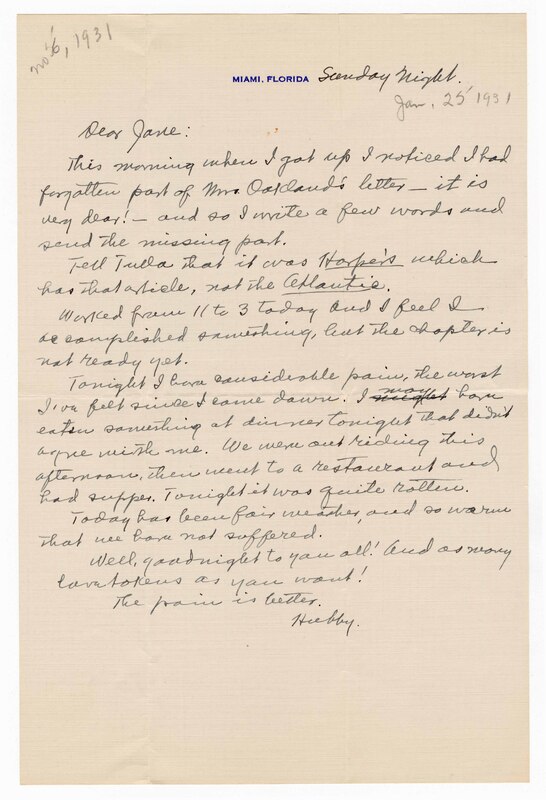 no. 6, 1931
MIAMI, FLORIDA Sunday Night.
Jan. 25 1931
Dear Jane:
This morning when I got up I noticed I had
forgotten part of Mrs Oakland's letter — it is
very dear! — and so I write a few words and
send the missing part.
Tell Tulla that it was Harper's which
has that article, not the Atlantic.
Worked from 11 to 3 today and I feel I
accomplished something, but the chapter is
not ready yet.
Tonight I have considerable pain, the worst
I've felt since I came down. I might may have
eaten something at dinner tonight that didn't
agree with me. We were out riding this
afternoon, then went to a restaurant and
had supper. Tonight it was quite rotten.
Today has been fair weather, and so warm
that we have not suffered.
Well, goodnight to you all! And as many
love tokens as you want!
The pain is better.
Hubby.